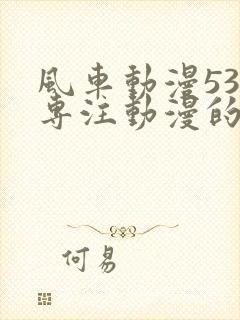 風車動漫53
專注動漫的
何易